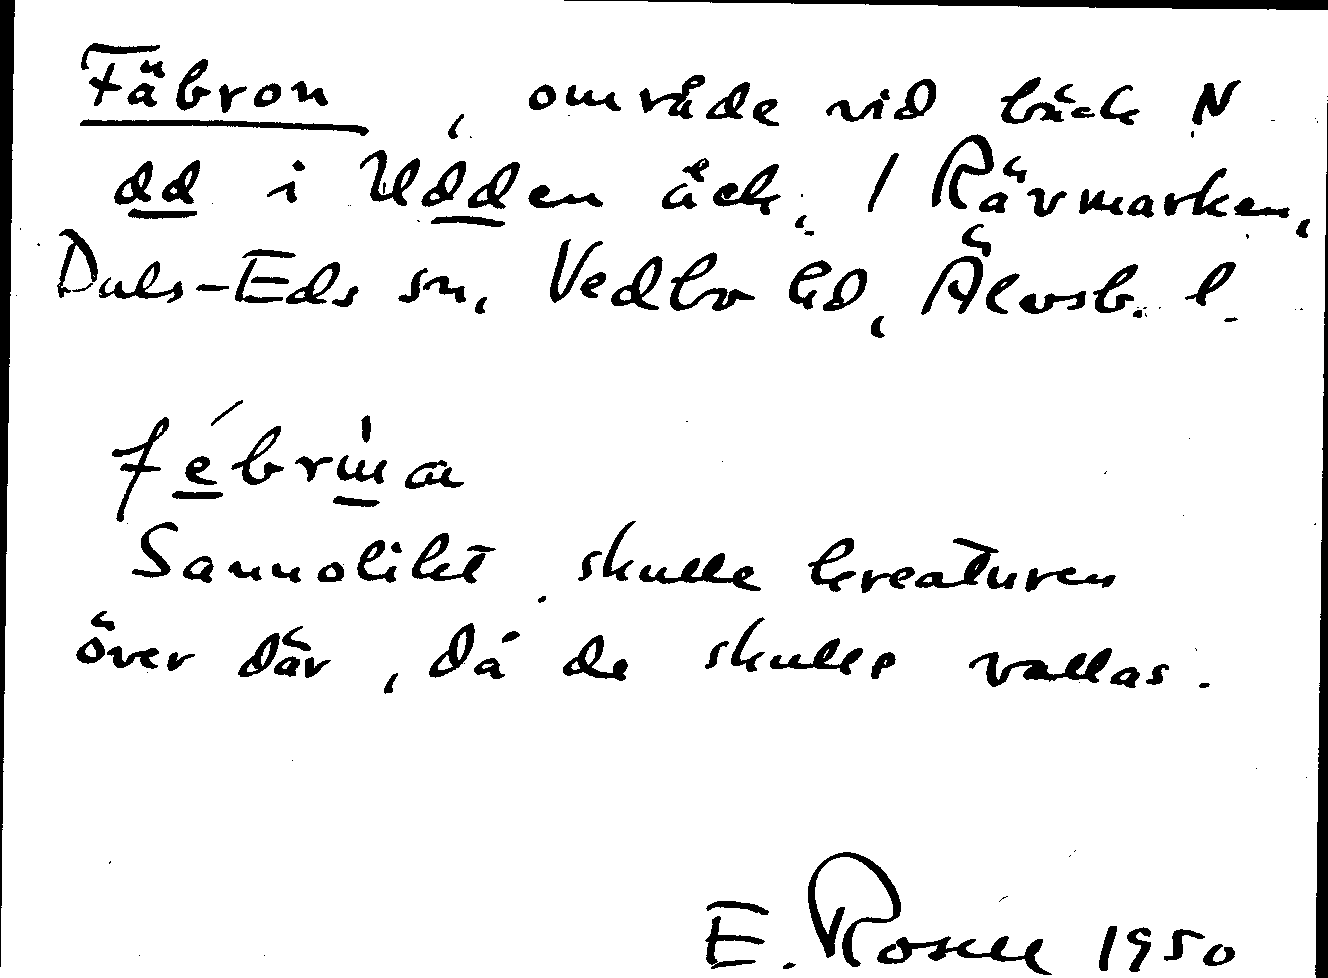 Fäbron, område vid bäck N
dd i Udden äck, 1 Rävmarken,
Dals-Eds sn, Vedbo hd, Älvsb. l.
Sannolikt skulle kreaturen
över där, då de skulle vallas.
E. Rosell 1950